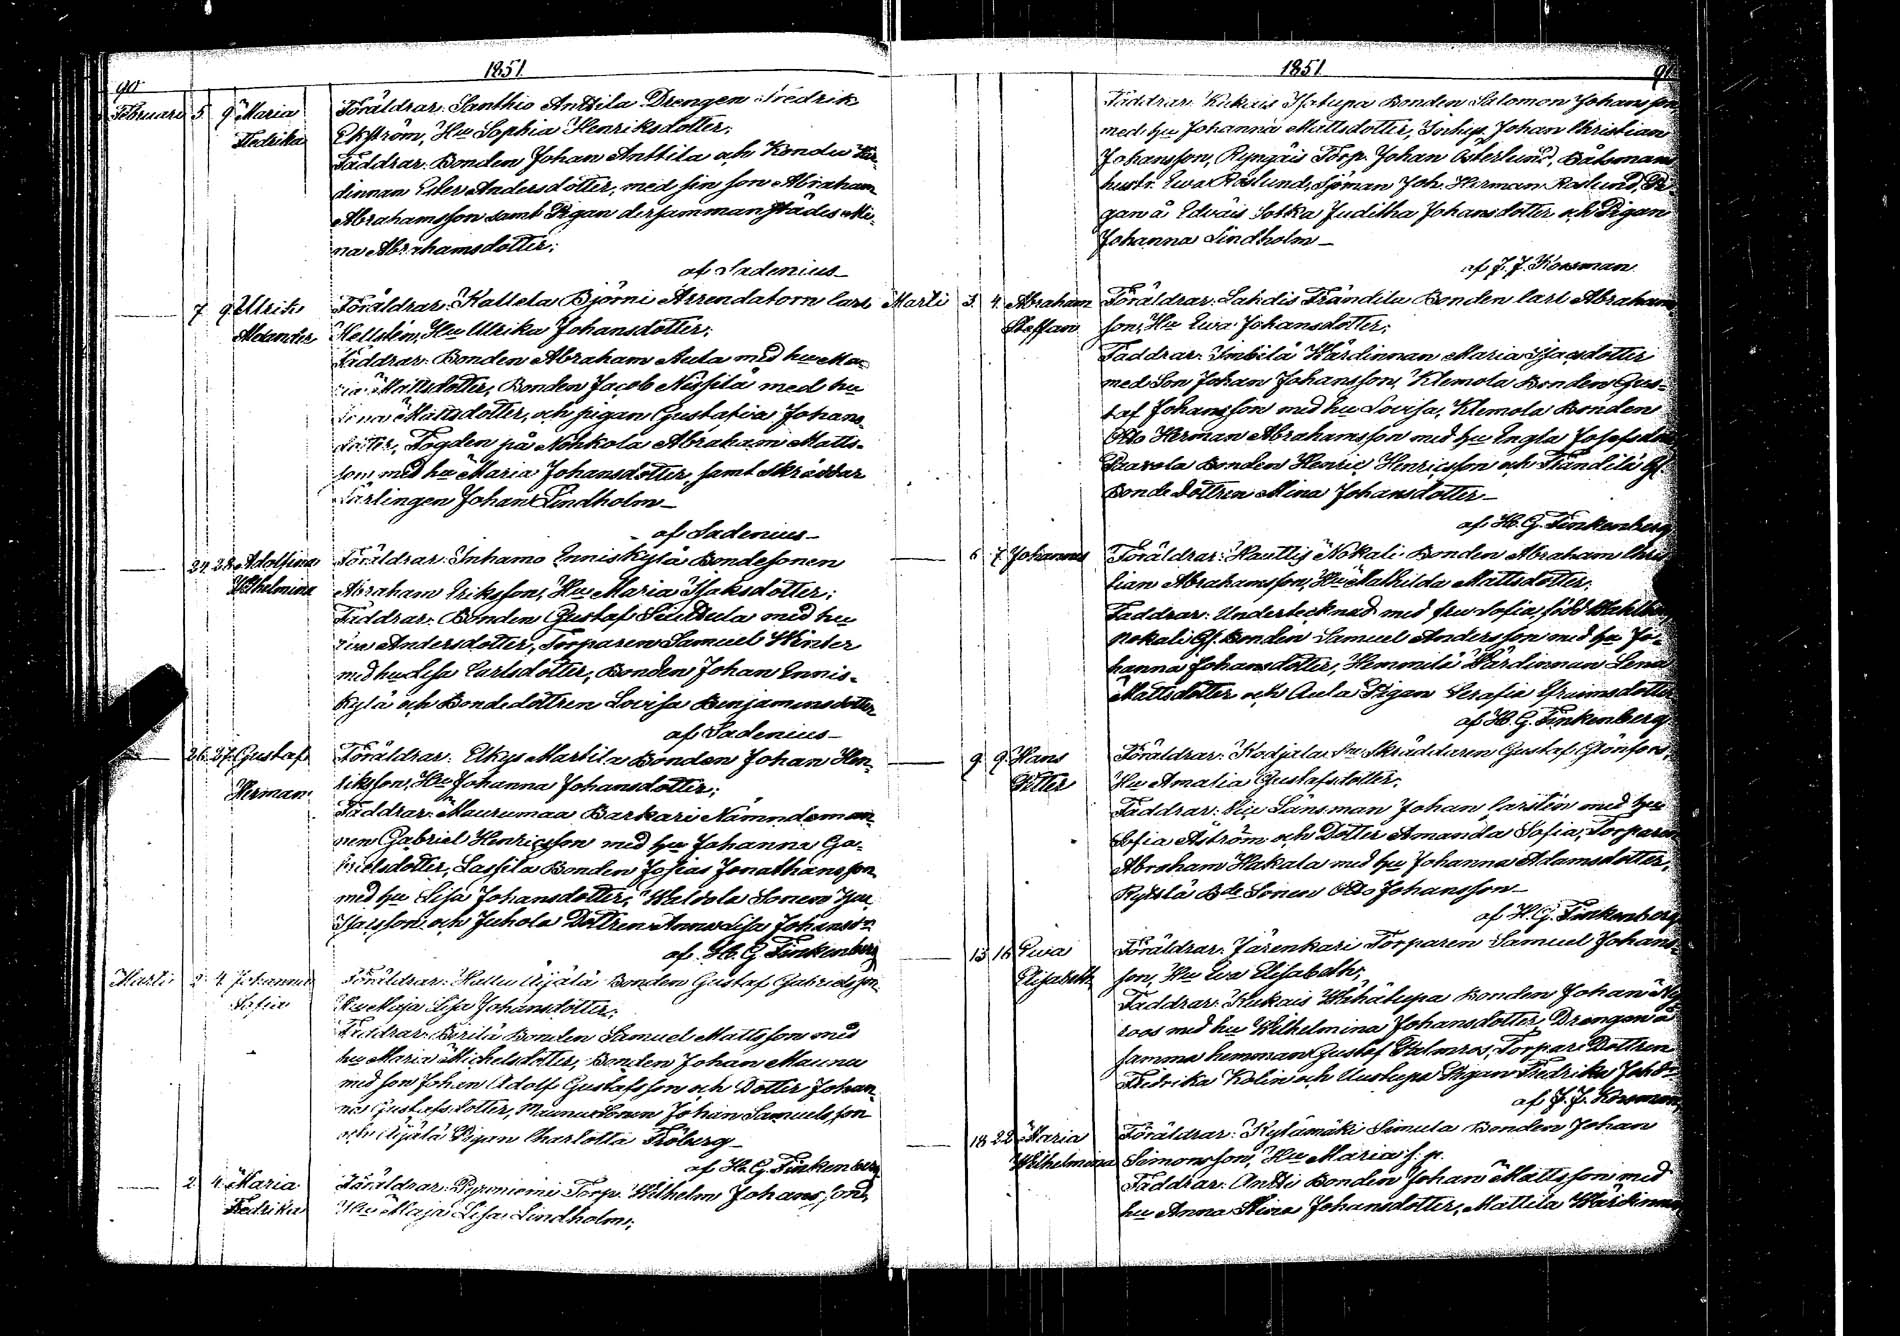 1851
90
Februari 5 9 Maria Föräldrar: Santhio Anttila Drengen Fredrik
Fredrika Ekström, Hu Sophia Henriksdotter;
Faddrar: Bonden Johan Anttila och Kondu Vär-
dinnan Ester Andersdotter, med sin son Abraham
Abrahamsson samt Pigan dersammanstädes Mi-
na Abrahamsdotter;
af Sadenius
7 9 Ulrik Föräldrar: Kallela Björni Arrendatorn Carl
Alexander Hellstén, Hu Ulrika Johansdotter;
Faddrar: Bonden Abraham Aula med hu Ma-
ria Mattsdotter, Bonden Jacob Nissilä med hu
Lena Mattsdotter, och pigan Gustafva Johans-
dotter, Fogden på Nohkola Abraham Matts-
son med hu Maria Johansdotter, samt Skräddar
Lärlingen Johan Lindholm
af Sadenius
24 28 Adolfina Föräldrar: Inhamo Enniskylä Bondesonen
Wilhelmina Abraham Eriksson, Hu Maria Isaksdotter;
Faddrar: Bonden Gustaf med hu
Andersdotter, Torparen Samuel Winter
med hu Lisa Carlsdotter, Bonden Johan Ennis-
kylä och Bondedottren Lovisa Benjaminsdotter
af Sadenius
26 27 Gustaf Föräldrar: Elkys Martila Bonden Johan Hen-
Herman riksson, Hu Johanna Johansdotter;
Faddrar: Maurumaa Barkari Nämndeman-
nen Gabriel Henricsson med hu Johanna Ga-
brielsdotter, Lassila Bonden Josias Jonathansson
med hu Lisa Johansdotter, Sonen
Isacsson och Juhola Dottren Anna Lisa Johansdr
af H. G. Finkenberg
Marti 2 4 Johanna Föräldrar: Äijälä Bonden Gustaf Gabrielsson
Sofia Hu Maja Lisa Johansdotter;
Faddrar: Bonden Samuel Mattsson med
hu Maria Michelsdotter, Bonden Johan Mauna
med son Johan Adolf Gustafsson och Dotter Johan-
na Gustafsdotter, Mauna Sonen Johan Samuelsson
och Äijälä Pigan Charlotta Fröberg
af H. G. Finkenberg
2 4 Maria Föräldrar: Torp. Wilhelm Johansson
Fredrika Hu Maja Lisa Lindholm;
1851
91
Faddrar: Kukais Isotupa Bonden Salomon Johansson
med hu Johanna Mattsdotter, Inhys. Johan Christian
Johansson, Torp. Johan Österlund, Båtsmans
hustr. Ewa Roslund, Sjöman Joh. Herman Roslund, Pi-
gan å Edväis Sotka Juditha Johansdotter och Pigan
Johanna Lindholm
af J. J. Korsman
Marti 3 4 Abraham Föräldrar: Lahdis Frändilä Bonden Carl Abrahams
Staffan son, Hu Ewa Johansdotter;
Faddrar: Imbilä Wärdinnan Maria Isacsdotter
med Son Johan Johansson, Klemola Bonden Gus-
taf Johansson med hu Lovisa, Klemola Bonden
Otto Herman Abrahamsson med hu Engla Josefsdotter
Paavola Bonden Henric Henricsson och Frändilä Gl.
Bonde Dottren Mina Johansdotter
af H. G. Finkenberg
6 7 Johannes Föräldrar: Kauttis Nokali Bonden Abraham Chris
tian Abrahamsson, Hu Mathilda Mattsdotter;
Faddrar: Undertecknad med fru Sofia, född
Nokali Gl. Bonden Samuel Andersson med hu Jo-
hanna Johansdotter, Hemmilä Wärdinnan Lena
Mattsdotter och Aula Pigan Serafia Grimsdotter
af H. G. Finkenberg
9 9 Hans Föräldrar: Kodjala Skräddaren Gustaf Grönfors,
Petter Hu Amalia Gustafsdotter;
Faddrar: Vice Länsman Johan Carstén med hu
Sofia Åström och Dotter Amanda Sofia, Torparen
Abraham Hakala med hu Johanna Adamsdotter,
Bde Sonen Otto Johansson
af H. G. Finkenberg
13 16 Ewa Föräldrar: Järenkari Torparen Samuel Johans-
Elisabeth son, Hu Eva Elisabeth;
Faddrar: Kukais Wähätupa Bonden Johan
roos med hu Wilhelmina Johansdotter, Drengen å
samma hemman Gustaf Palmros, Torpare Dottren
Fredrika Kolin och Uustupa Pigan Fredrika Johdr
af J. J. Korsman
18 22 Maria Föräldrar: Kylämäki Simula Bonden Johan
Wilhelmina Simonsson, Hu Maria
Faddrar: Antti Bonden Johan Mattsson med
hu Anna Stina Johansdotter, Mattila Wärdinnan